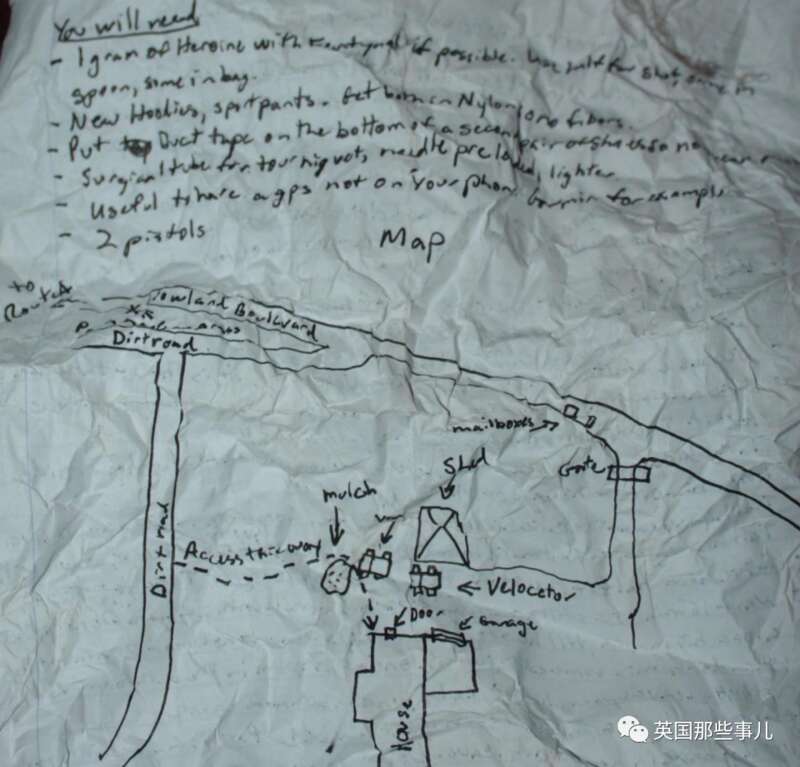 You will need
- 1 gram of Heroine with if possible. Use half for shot, some in
spoon, some in bag.
- New Hoodius, sportpants. Get both in Nylon, no fibers.
- Put Duct tape on the bottom of a second pair of shoes so
- Surgical tube for tourniquet, needle pre loaded, lighter
- Useful to have a gps not on your phone. Garmin for example
- 2 pistols
Map
to
Route A
Rowland Boulevard
xx
Dirt road
mailboxes
Gate
Shed
mulch
Access this way
Dirt road
Velocetor
Door
Garage
House
英国那些事儿